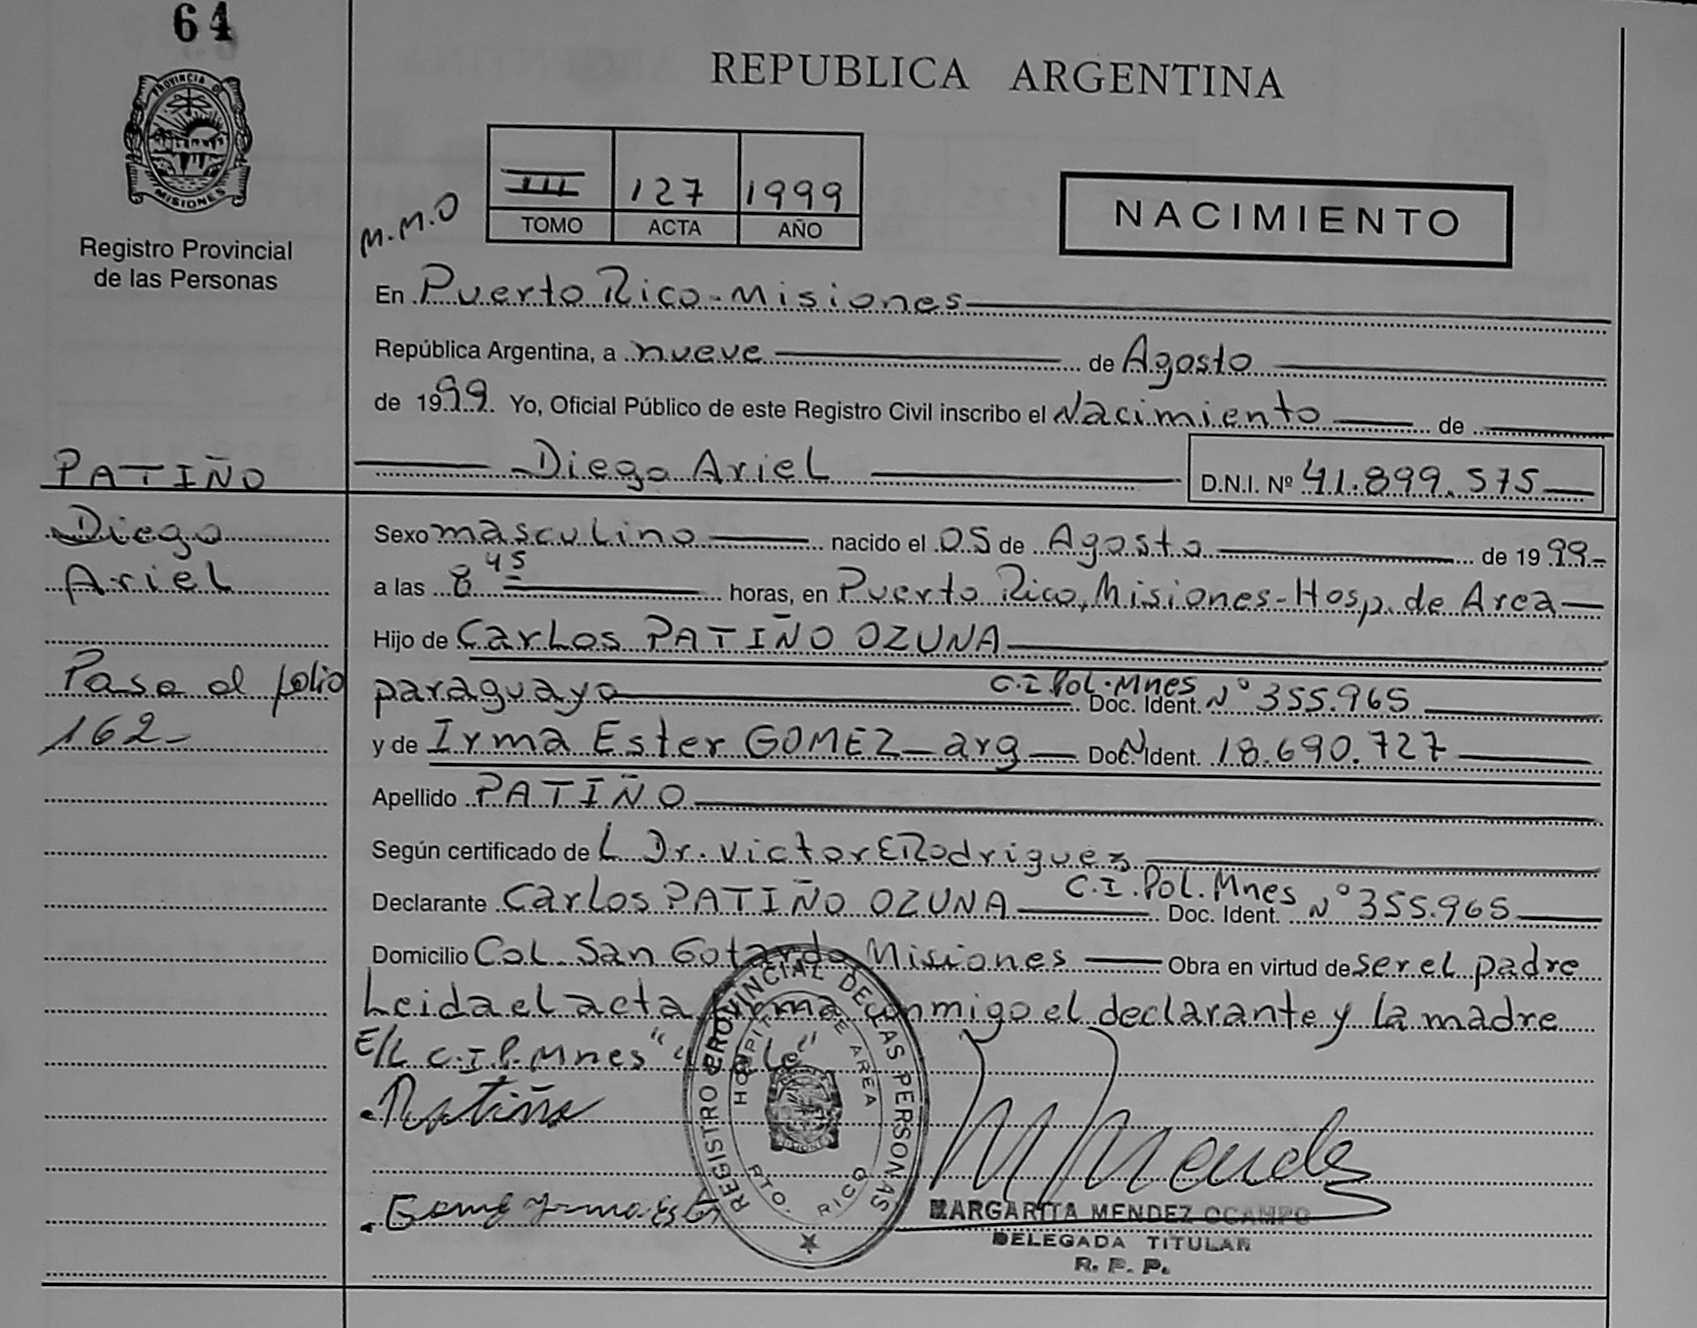 64
PROVINCIA DE
MISIONES
Registro Provincial
de las Personas
REPUBLICA ARGENTINA
M.M.O
III 127 1999
TOMO ACTA AÑO
NACIMIENTO
En Puerto Rico - Misiones
República Argentina, a nueve de Agosto
de 1999. Yo, Oficial Público de este Registro Civil inscribo el Nacimiento de
Diego Ariel D.N.I. Nº 41.899.575
PATIÑO
Diego
Ariel
Pase al folio
162-
Sexo masculino nacido el 05 de Agosto de 1999-
a las 8 45 horas, en Puerto Rico, Misiones-Hosp. de Area
Hijo de Carlos PATIÑO OZUNA
paraguayo C.I.Pol.Mnes Doc. Ident. Nº 355.965
y de Irma Ester GOMEZ - arg Doc. N Ident. 18.690.727
Apellido PATIÑO
Según certificado de L Dr. Victor E Rodriguez
Declarante Carlos PATIÑO OZUNA C.I.Pol.Mnes Doc. Ident. Nº 355.965
Domicilio Col. San Gotardo, Misiones Obra en virtud de ser el padre
Leida el acta firma conmigo el declarante y la madre
E/L C.I.P. Mnes" "
Patiño
Gomez Irma Ester
REGISTRO PROVINCIAL DE LAS PERSONAS
HOSPITAL DE AREA
PTO. RICO
M Mendez
MARGARITA MENDEZ OCAMPO
DELEGADA TITULAR
R. P. P.